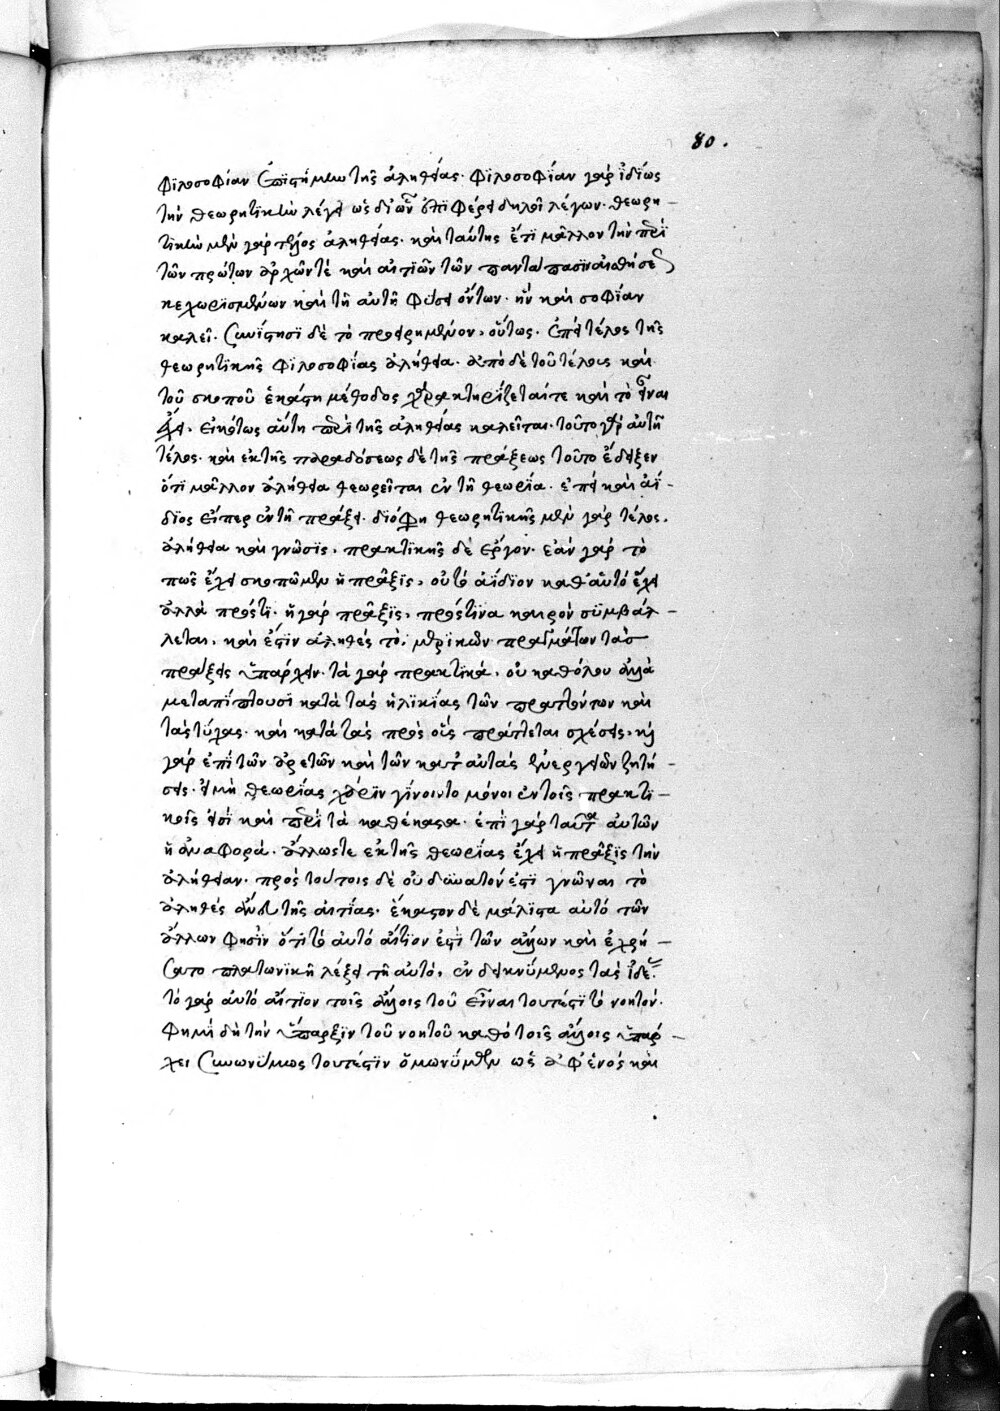 80.
φιλοσοφίαν ἐπιστήμην τῆς ἀληθείας· φιλοσοφίαν γὰρ ἰδίως
τὴν θεωρητικὴν λέγει ὡς δι' ὧν ἐπιφέρει δηλοῖ λέγων· θεωρη-
τικὴν μὲν γὰρ τέλος ἀληθείας· καὶ ταύτης ἔτι μᾶλλον τὴν περὶ
τῶν πρώτων ἀρχῶν τὲ καὶ αἰτιῶν τῶν παντάπασιν αἰσθήσεως
κεχωρισμένων καὶ τῇ αὐτῇ φύσει ὄντων· ἣν καὶ σοφίαν
καλεῖ. συνίστησι δὲ τὸ προειρημένον, οὕτως. ἐπεὶ τέλος τῆς
θεωρητικῆς φιλοσοφίας ἀλήθεια. ἀπὸ δὲ τοῦ τέλους καὶ
τοῦ σκοποῦ ἑκάστη μέθοδος χαρακτηρίζεταί τε καὶ τὸ εἶναι
ἔχει. εἰκότως αὕτη περὶ τῆς ἀληθείας καλεῖται. τοῦτο γὰρ αὐτῇ
τέλος. καὶ ἐκ τῆς παραδόσεως δὲ τῆς πράξεως τοῦτο ἔδειξεν
ὅτι μᾶλλον ἀλήθεια θεωρεῖται ἐν τῇ θεωρίᾳ. ἐπεὶ καὶ ἀΐ-
διος εἴπερ ἐν τῇ πράξει. διό φησι θεωρητικῆς μὲν γὰρ τέλος.
ἀλήθεια καὶ γνῶσις, πρακτικῆς δὲ ἔργον. ἐὰν γὰρ τὸ
πῶς ἔχει σκοπῶμεν ἡ πρᾶξις, οὐ τὸ ἀΐδιον καθ' αὑτὸ ἔχει
ἀλλὰ πρός τι. ἡ γὰρ πρᾶξις, πρός τινα καιρὸν συμβάλ-
λεται, καὶ ἔστιν ἀληθὲς τὸ, μερικῶν πραγμάτων τὰς
πράξεις ὑπάρχειν. τὰ γὰρ πρακτικά, οὐ καθόλου ἀλλὰ
μεταπίπτουσι κατὰ τὰς ἡλικίας τῶν πραττόντων καὶ
τὰς τύχας. καὶ κατὰ τὰς πρὸς οὓς πράττεται σχέσεις, καὶ
γὰρ ἐπὶ τῶν ἀρετῶν καὶ τῶν κατ' αὐτὰς ἐνεργειῶν ζητή-
σεις. εἰ μὴ θεωρίας χάριν γίνοιντο μόνοι ἐν τοῖς πρακτι-
κοῖς εἰσὶ καὶ περὶ τὰ καθέκαστα. ἐπὶ γὰρ ταῦτα αὐτῶν
ἡ ἀναφορά. ἄλλως τε ἐκ τῆς θεωρίας ἔχει ἡ πρᾶξις τὴν
ἀλήθειαν. πρὸς τούτοις δὲ οὐ δυνατόν ἐστι γνῶναι τὸ
ἀληθὲς ἄνευ τῆς αἰτίας. ἕκαστον δὲ μάλιστα αὐτὸ τῶν
ἄλλων φησὶν ὅτι τὸ αὐτὸ αἴτιον ἐστὶ τῶν ἄλλων καὶ ἐχρή-
σατο πλατωνικῇ λέξει τῇ αὐτό, ἐνδεικνύμενος τὰς ἰδέας.
τὸ γὰρ αὐτὸ αἴτιον τοῖς ἄλλοις τοῦ εἶναι τουτέστι τὸ νοητόν.
φημὶ δὴ τὴν ὕπαρξιν τοῦ νοητοῦ καθὸ τοῖς ἄλλοις ὑπάρ-
χει συνωνύμως τουτέστιν ὁμωνύμων ὡς ἀφ' ἑνὸς καὶ